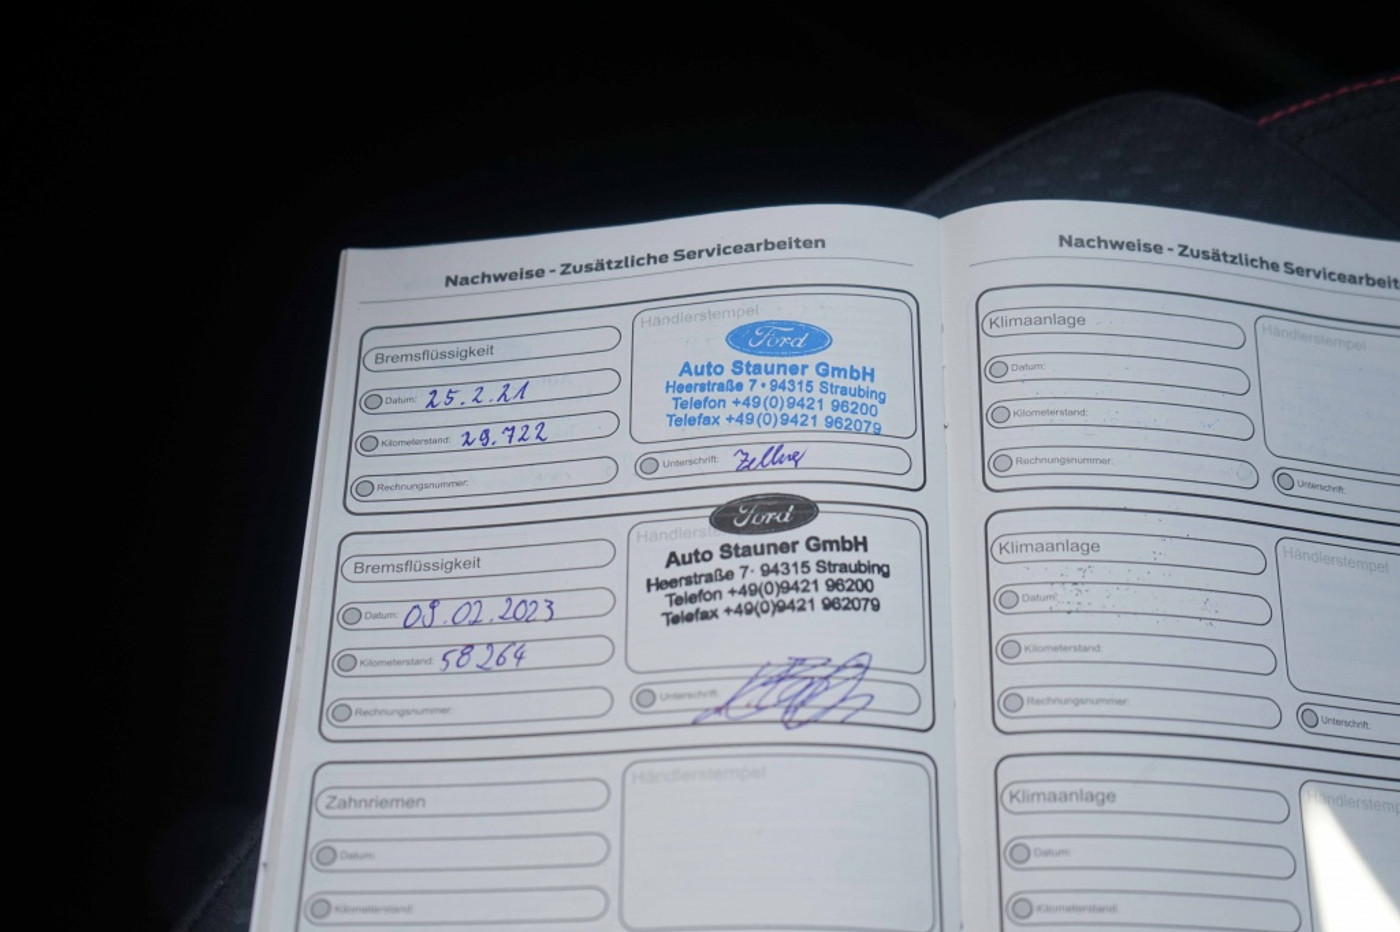 Nachweise - Zusätzliche Servicearbeiten
Bremsflüssigkeit
Datum: 25.2.21
Kilometerstand: 29.722
Rechnungsnummer:
Händlerstempel
Ford
Auto Stauner GmbH
Heerstraße 7 · 94315 Straubing
Telefon +49(0)9421 96200
Telefax +49(0)9421 962079
Unterschrift: Zellner
Bremsflüssigkeit
Datum: 09.02.2023
Kilometerstand: 58264
Rechnungsnummer:
Händlerst
Ford
Auto Stauner GmbH
Heerstraße 7 · 94315 Straubing
Telefon +49(0)9421 96200
Telefax +49(0)9421 962079
Unterschrift:
Zahnriemen
Datum:
Kilometerstand:
Händlerstempel
Nachweise - Zusätzliche Servicearbeit
Klimaanlage
Datum:
Kilometerstand:
Rechnungsnummer:
Händlerstempel
Unterschrift:
Klimaanlage
Datum:
Kilometerstand:
Rechnungsnummer:
Händlerstempel
Unterschrift:
Klimaanlage
Datum:
Kilometerstand:
Händlerstemp